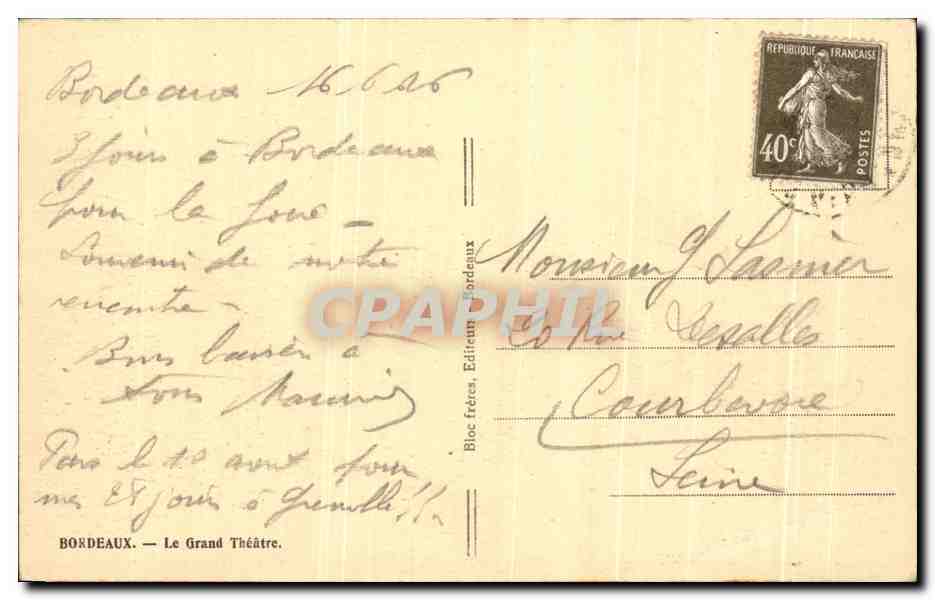 Bordeaux 16.6.26
3 jours à Bordeaux
pour la foire –
Souvenir de notre
rencontre –
Bons baisers à
tous Maurice
Pars le 10 août pour
mes 28 jours à Grenoble!!
BORDEAUX. — Le Grand Théâtre.
Bloc frères, Editeurs - Bordeaux
CPAPHIL
REPUBLIQUE FRANÇAISE
40c
POSTES
Monsieur G
20 Rue
Courbevoie
Seine